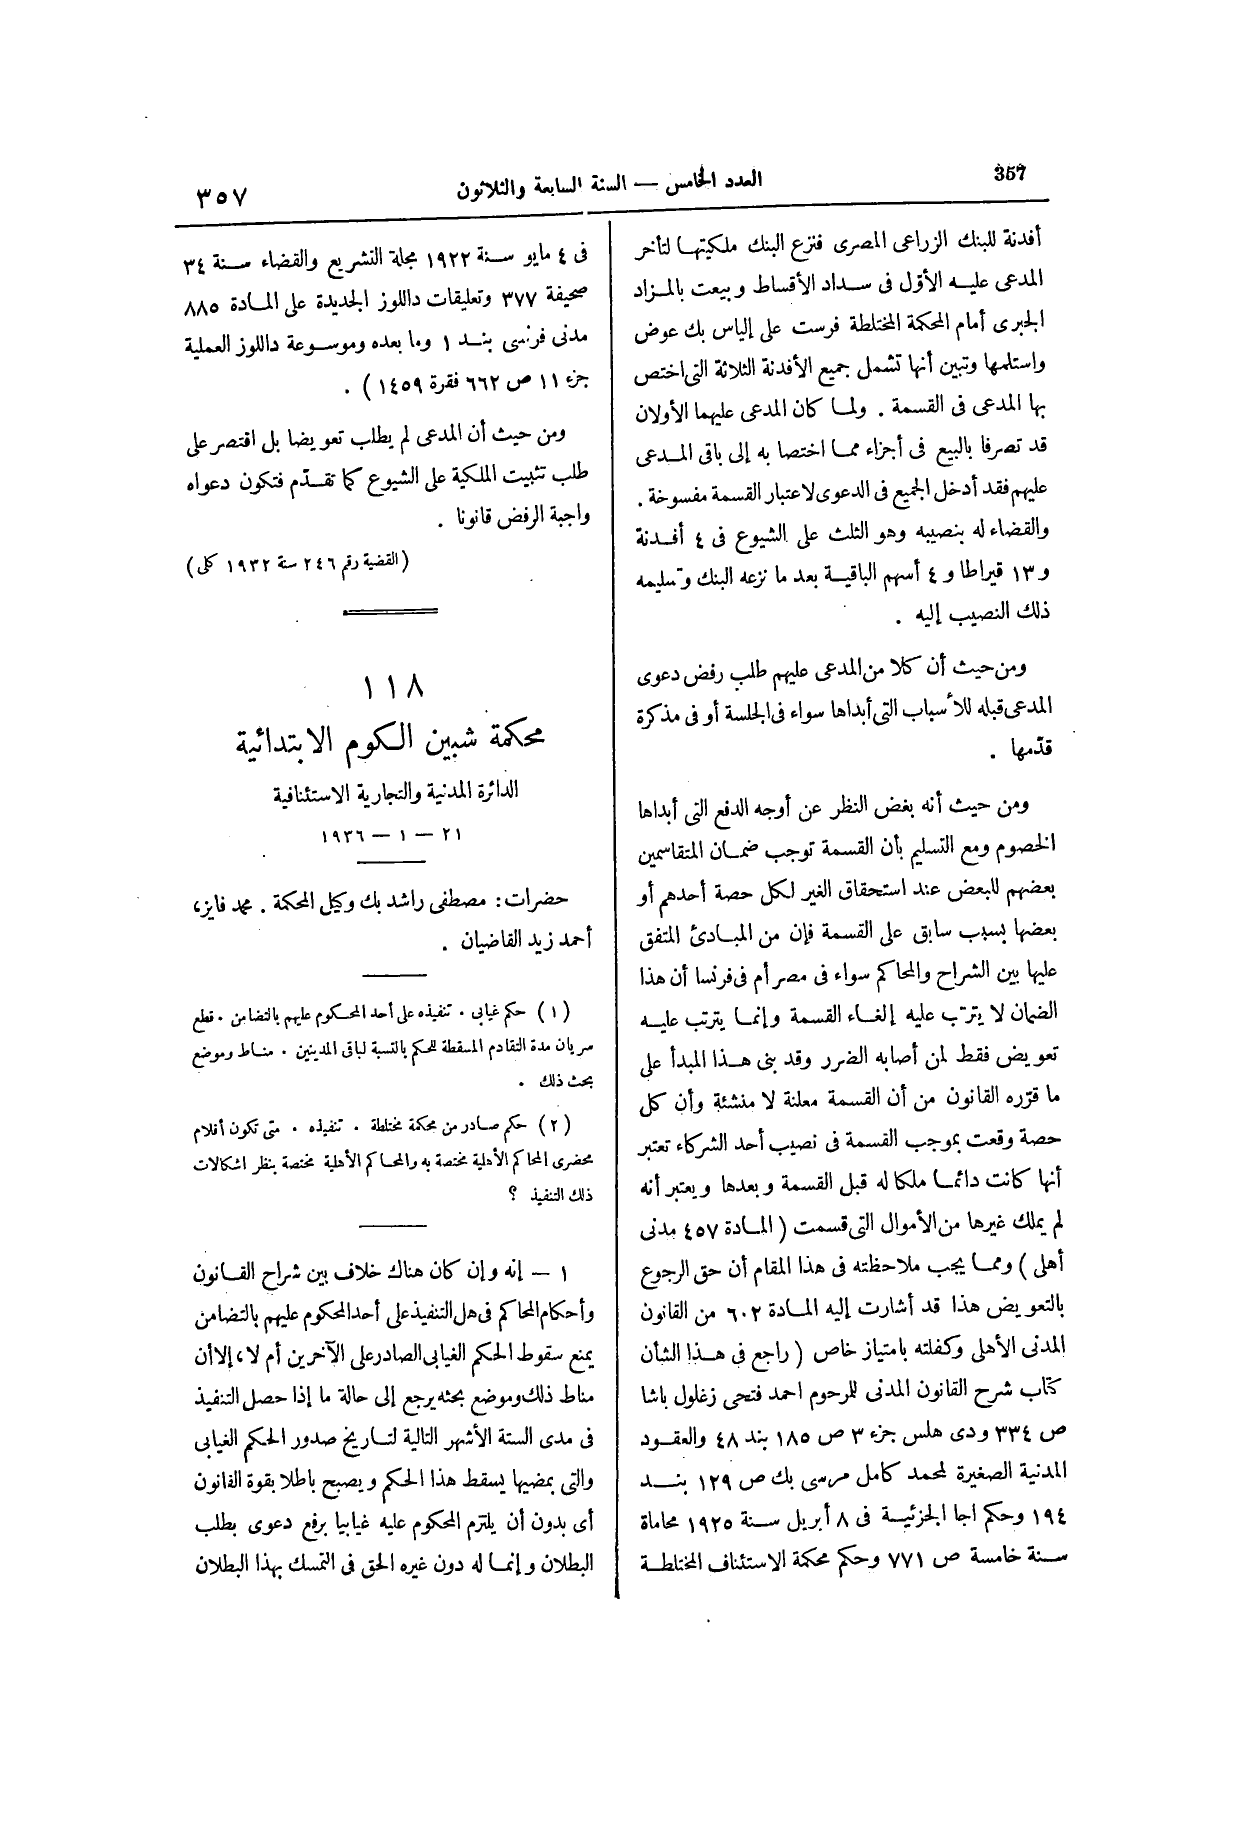 357
العدد الخامس — السنة السابعة والثلاثون
٣٥٧
أفدنة للبنك الزراعى المصرى فنزع البنك ملكيتها لتأخر
المدعى عليه الأول فى سداد الأقساط وبيعت بالمزاد
الجبرى أمام المحكمة المختلطة فرست على إلياس بك عوض
واستلمها وتبين أنها تشمل جميع الأفدنة الثلاثة التى اختص
بها المدعى فى القسمة . ولما كان المدعى عليهما الأولان
قد تصرفا بالبيع فى أجزاء مما اختصا به إلى باقى المدعى
عليهم فقد أدخل الجميع فى الدعوى لاعتبار القسمة مفسوخة .
والقضاء له بنصيبه وهو الثلث على الشيوع فى ٤ أفدنة
و ١٣ قيراطا و ٤ أسهم الباقية بعد ما نزعه البنك وتسليمه
ذلك النصيب إليه .
ومن حيث أن كلا من المدعى عليهم طلب رفض دعوى
المدعى قبله للأسباب التى أبداها سواء فى الجلسة أو فى مذكرة
قدّمها .
ومن حيث أنه بغض النظر عن أوجه الدفع التى أبداها
الخصوم ومع التسليم بأن القسمة توجب ضمان المتقاسمين
بعضهم للبعض عند استحقاق الغير لكل حصة أحدهم أو
بعضها بسبب سابق على القسمة فإن من المبادئ المتفق
عليها بين الشراح والمحاكم سواء فى مصر أم فى فرنسا أن هذا
الضمان لا يترتب عليه إلغاء القسمة وإنما يترتب عليه
تعويض فقط لمن أصابه الضرر وقد بنى هذا المبدأ على
ما قرّره القانون من أن القسمة معلنة لا منشئة وأن كل
حصة وقعت بموجب القسمة فى نصيب أحد الشركاء تعتبر
أنها كانت دائما ملكا له قبل القسمة وبعدها ويعتبر أنه
لم يملك غيرها من الأموال التى قسمت ( المادة ٤٥٧ مدنى
أهلى ) ومما يجب ملاحظته فى هذا المقام أن حق الرجوع
بالتعويض هذا قد أشارت إليه المادة ٦٠٢ من القانون
المدنى الأهلى وكفلته بامتياز خاص ( راجع فى هذا الشأن
كتاب شرح القانون المدنى للمرحوم احمد فتحى زغلول باشا
ص ٣٣٤ ودى هلس جزء ٣ ص ١٨٥ بند ٤٨ والعقود
المدنية الصغيرة لمحمد كامل مرسى بك ص ١٢٩ بند
١٩٤ وحكم اجا الجزئية فى ٨ أبريل سنة ١٩٢٥ محاماة
سنة خامسة ص ٧٧١ وحكم محكمة الاستئناف المختلطة
فى ٤ مايو سنة ١٩٢٢ مجلة التشريع والقضاء سنة ٣٤
صحيفة ٣٧٧ وتعليقات داللوز الجديدة على المادة ٨٨٥
مدنى فرنسى بند ١ وما بعده وموسوعة داللوز العملية
جزء ١١ ص ٦٦٢ فقرة ١٤٥٩ ) .
ومن حيث أن المدعى لم يطلب تعويضا بل اقتصر على
طلب تثبيت الملكية على الشيوع كما تقدّم فتكون دعواه
واجبة الرفض قانونا .
( القضية رقم ٢٤٦ سنة ١٩٣٢ كلى )
١١٨
محكمة شبين الكوم الابتدائية
الدائرة المدنية والتجارية الاستئنافية
٢١ — ١ — ١٩٣٦
حضرات : مصطفى راشد بك وكيل المحكمة . محمد فايز،
أحمد زيد القاضيان .
( ١ ) حكم غيابى . تنفيذه على أحد المحكوم عليهم بالتضامن . قطع
سريان مدة التقادم المسقطة للحكم بالنسبة لباقى المدينين . مناط وموضع
بحث ذلك .
( ٢ ) حكم صادر من محكمة مختلطة . تنفيذه . متى تكون أقلام
محضرى المحاكم الأهلية مختصة به والمحاكم الأهلية مختصة بنظر اشكالات
ذلك التنفيذ ؟
١ — إنه وإن كان هناك خلاف بين شراح القانون
وأحكام المحاكم فى هل التنفيذ على أحد المحكوم عليهم بالتضامن
يمنع سقوط الحكم الغيابى الصادر على الآخرين أم لا، إلا أن
مناط ذلك وموضع بحثه يرجع إلى حالة ما إذا حصل التنفيذ
فى مدى الستة الأشهر التالية لتاريخ صدور الحكم الغيابى
والتى بمضيها يسقط هذا الحكم ويصبح باطلا بقوة القانون
أى بدون أن يلتزم المحكوم عليه غيابيا برفع دعوى بطلب
البطلان وإنما له دون غيره الحق فى التمسك بهذا البطلان